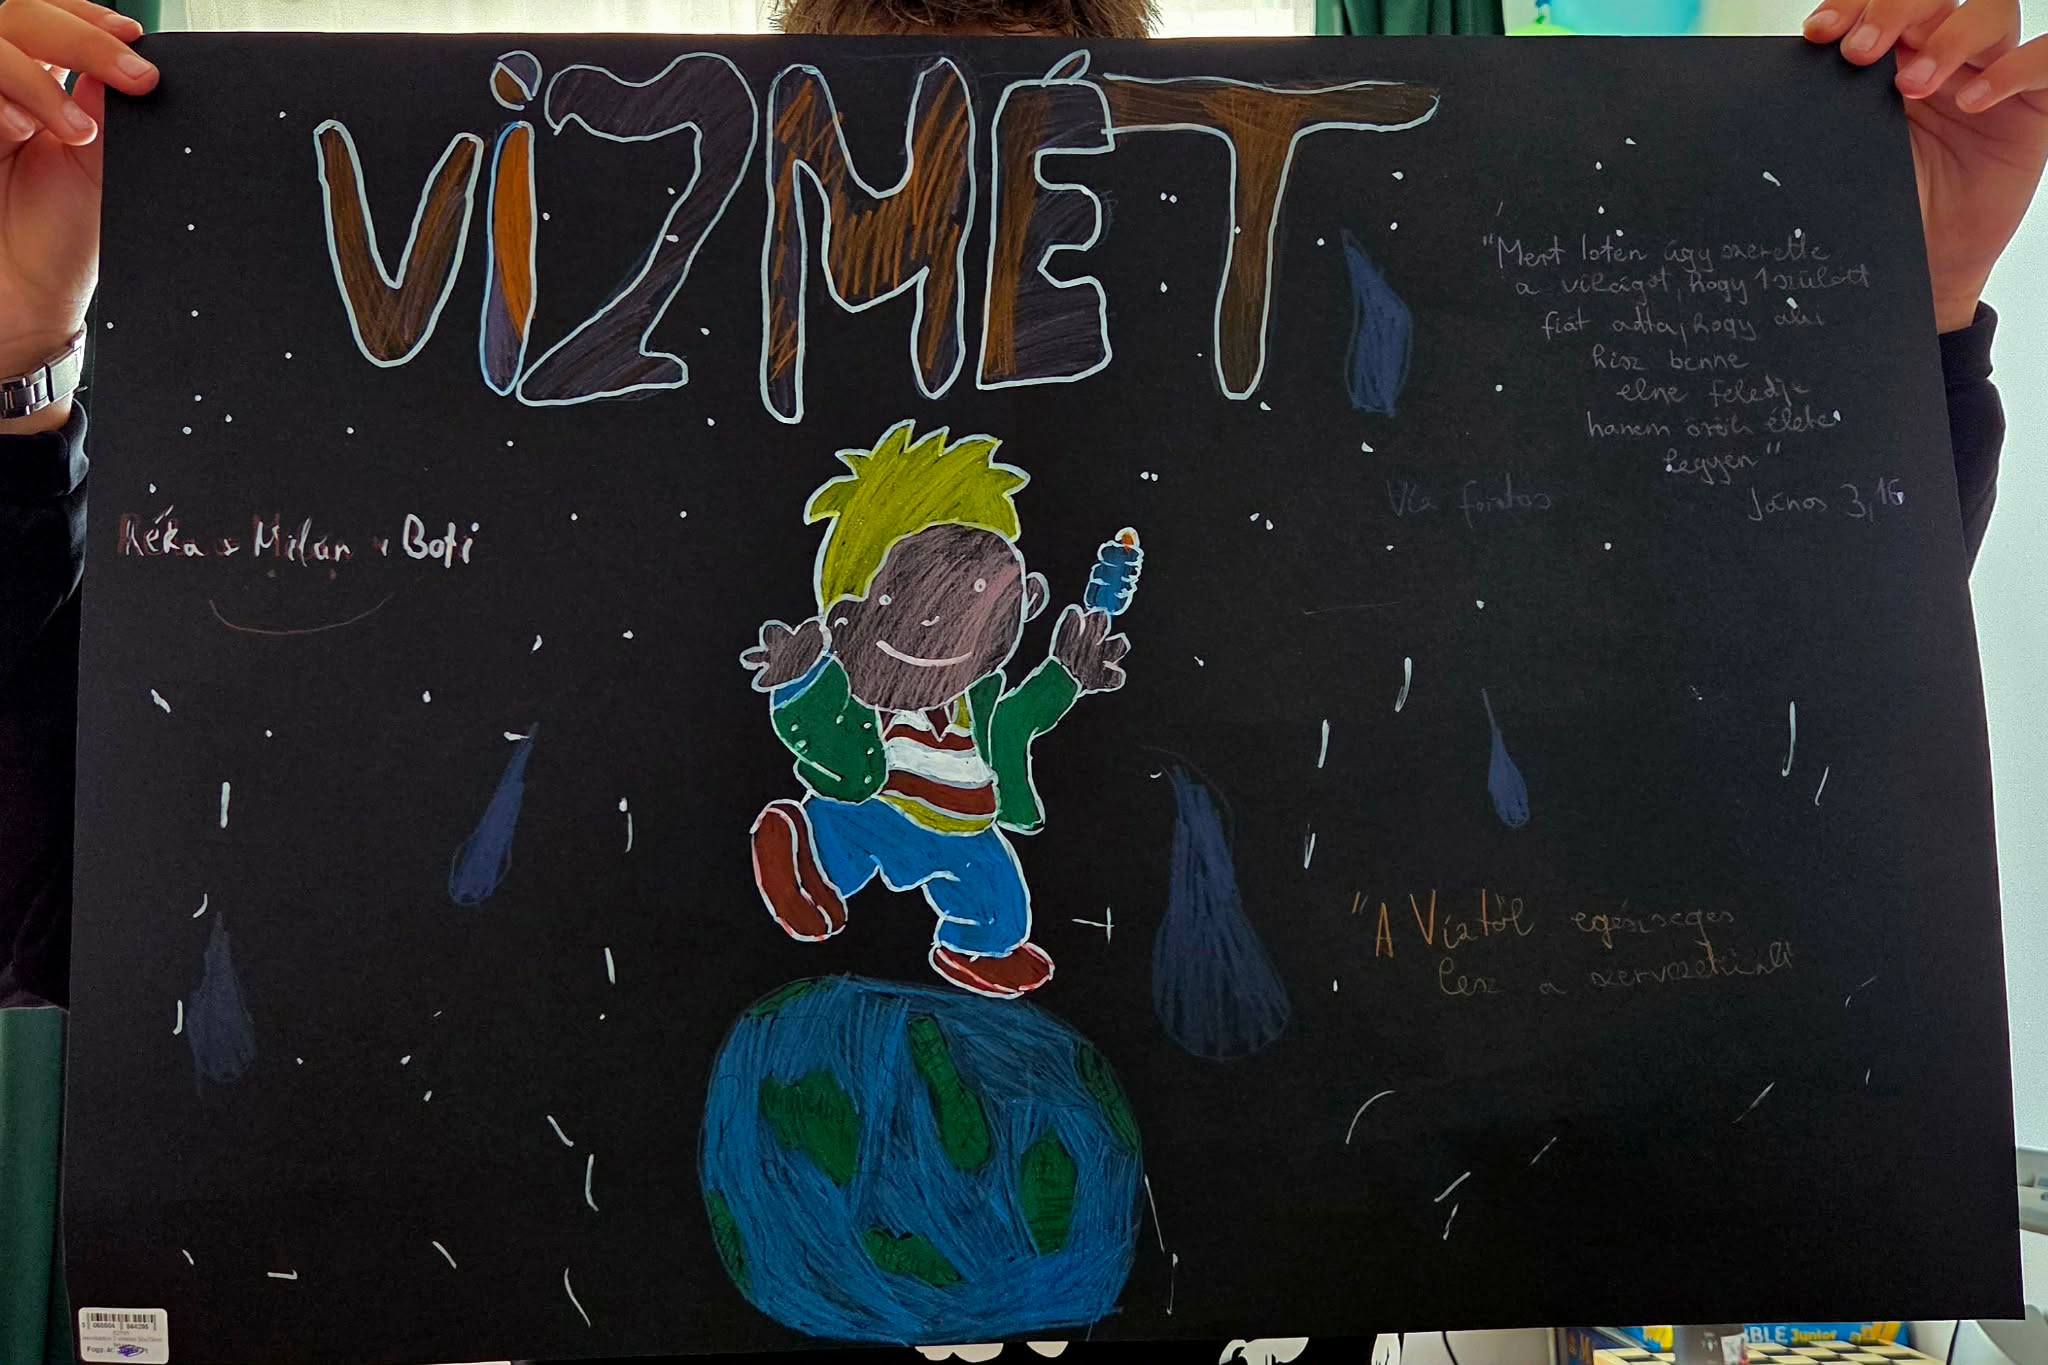 VÍZMÉT
"Mert Isten úgy szerette
a világot, hogy 1szülött
fiát adta, hogy aki
hisz benne
elne feledje
hanem örök élete
legyen"
János 3,16
Víz forrás
Réka Milán Boti
"A Víztől egészséges
lesz a szervezetünk"